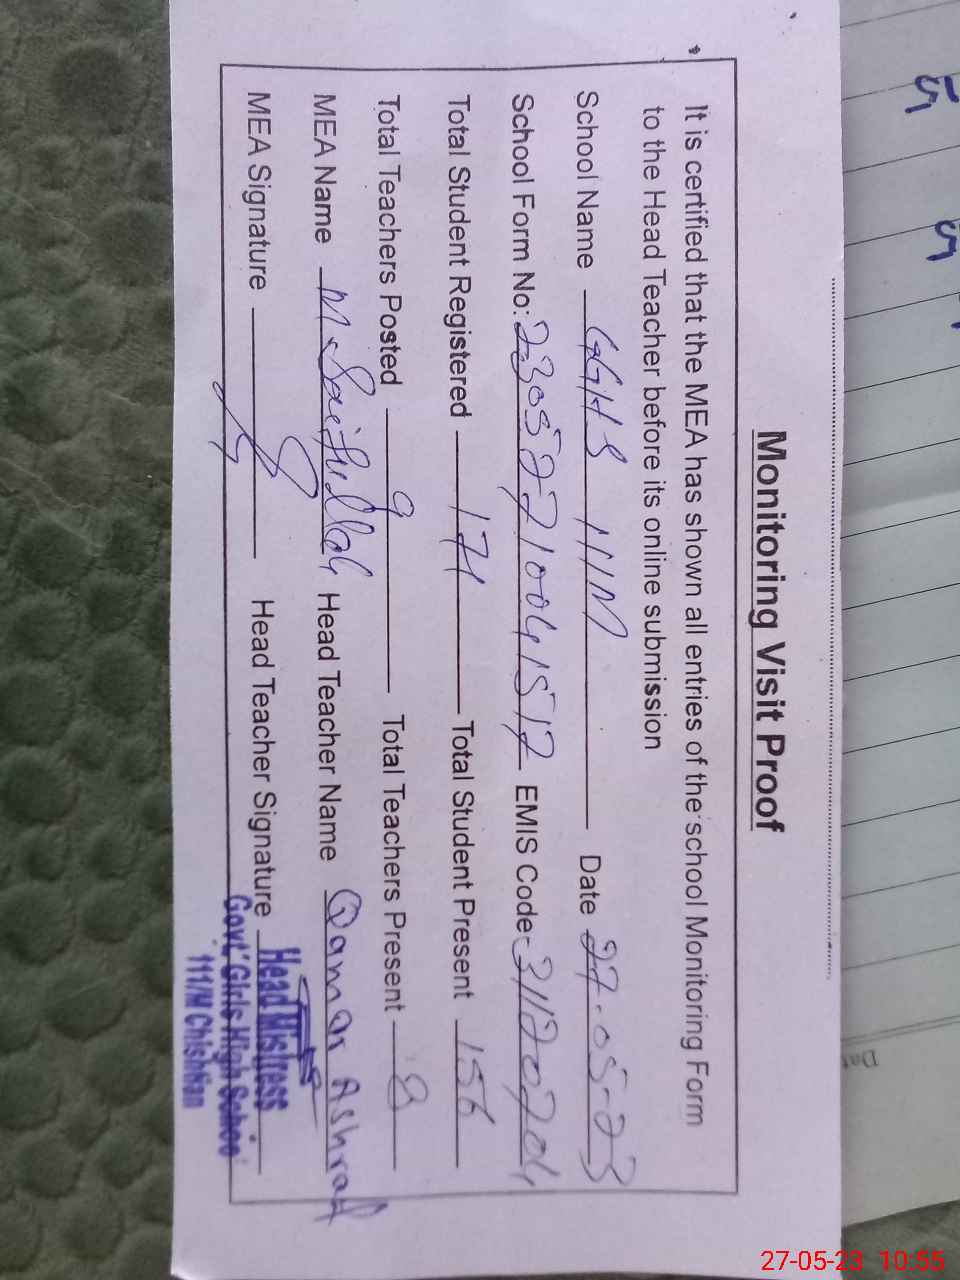 Monitoring Visit Proof
It is certified that the MEA has shown all entries of the school Monitoring Form
to the Head Teacher before its online submission
School Name GGHS 111/M Date 27-05-23
School Form No: EMIS Code
Total Student Registered 171 Total Student Present 156
Total Teachers Posted 9 Total Teachers Present 8
MEA Name M. Saifullah Head Teacher Name Qamar Ashraf
MEA Signature Head Teacher Signature
Head Mistress
Govt' Girls High School
111/M Chishtian
Dat
27-05-23 10:55